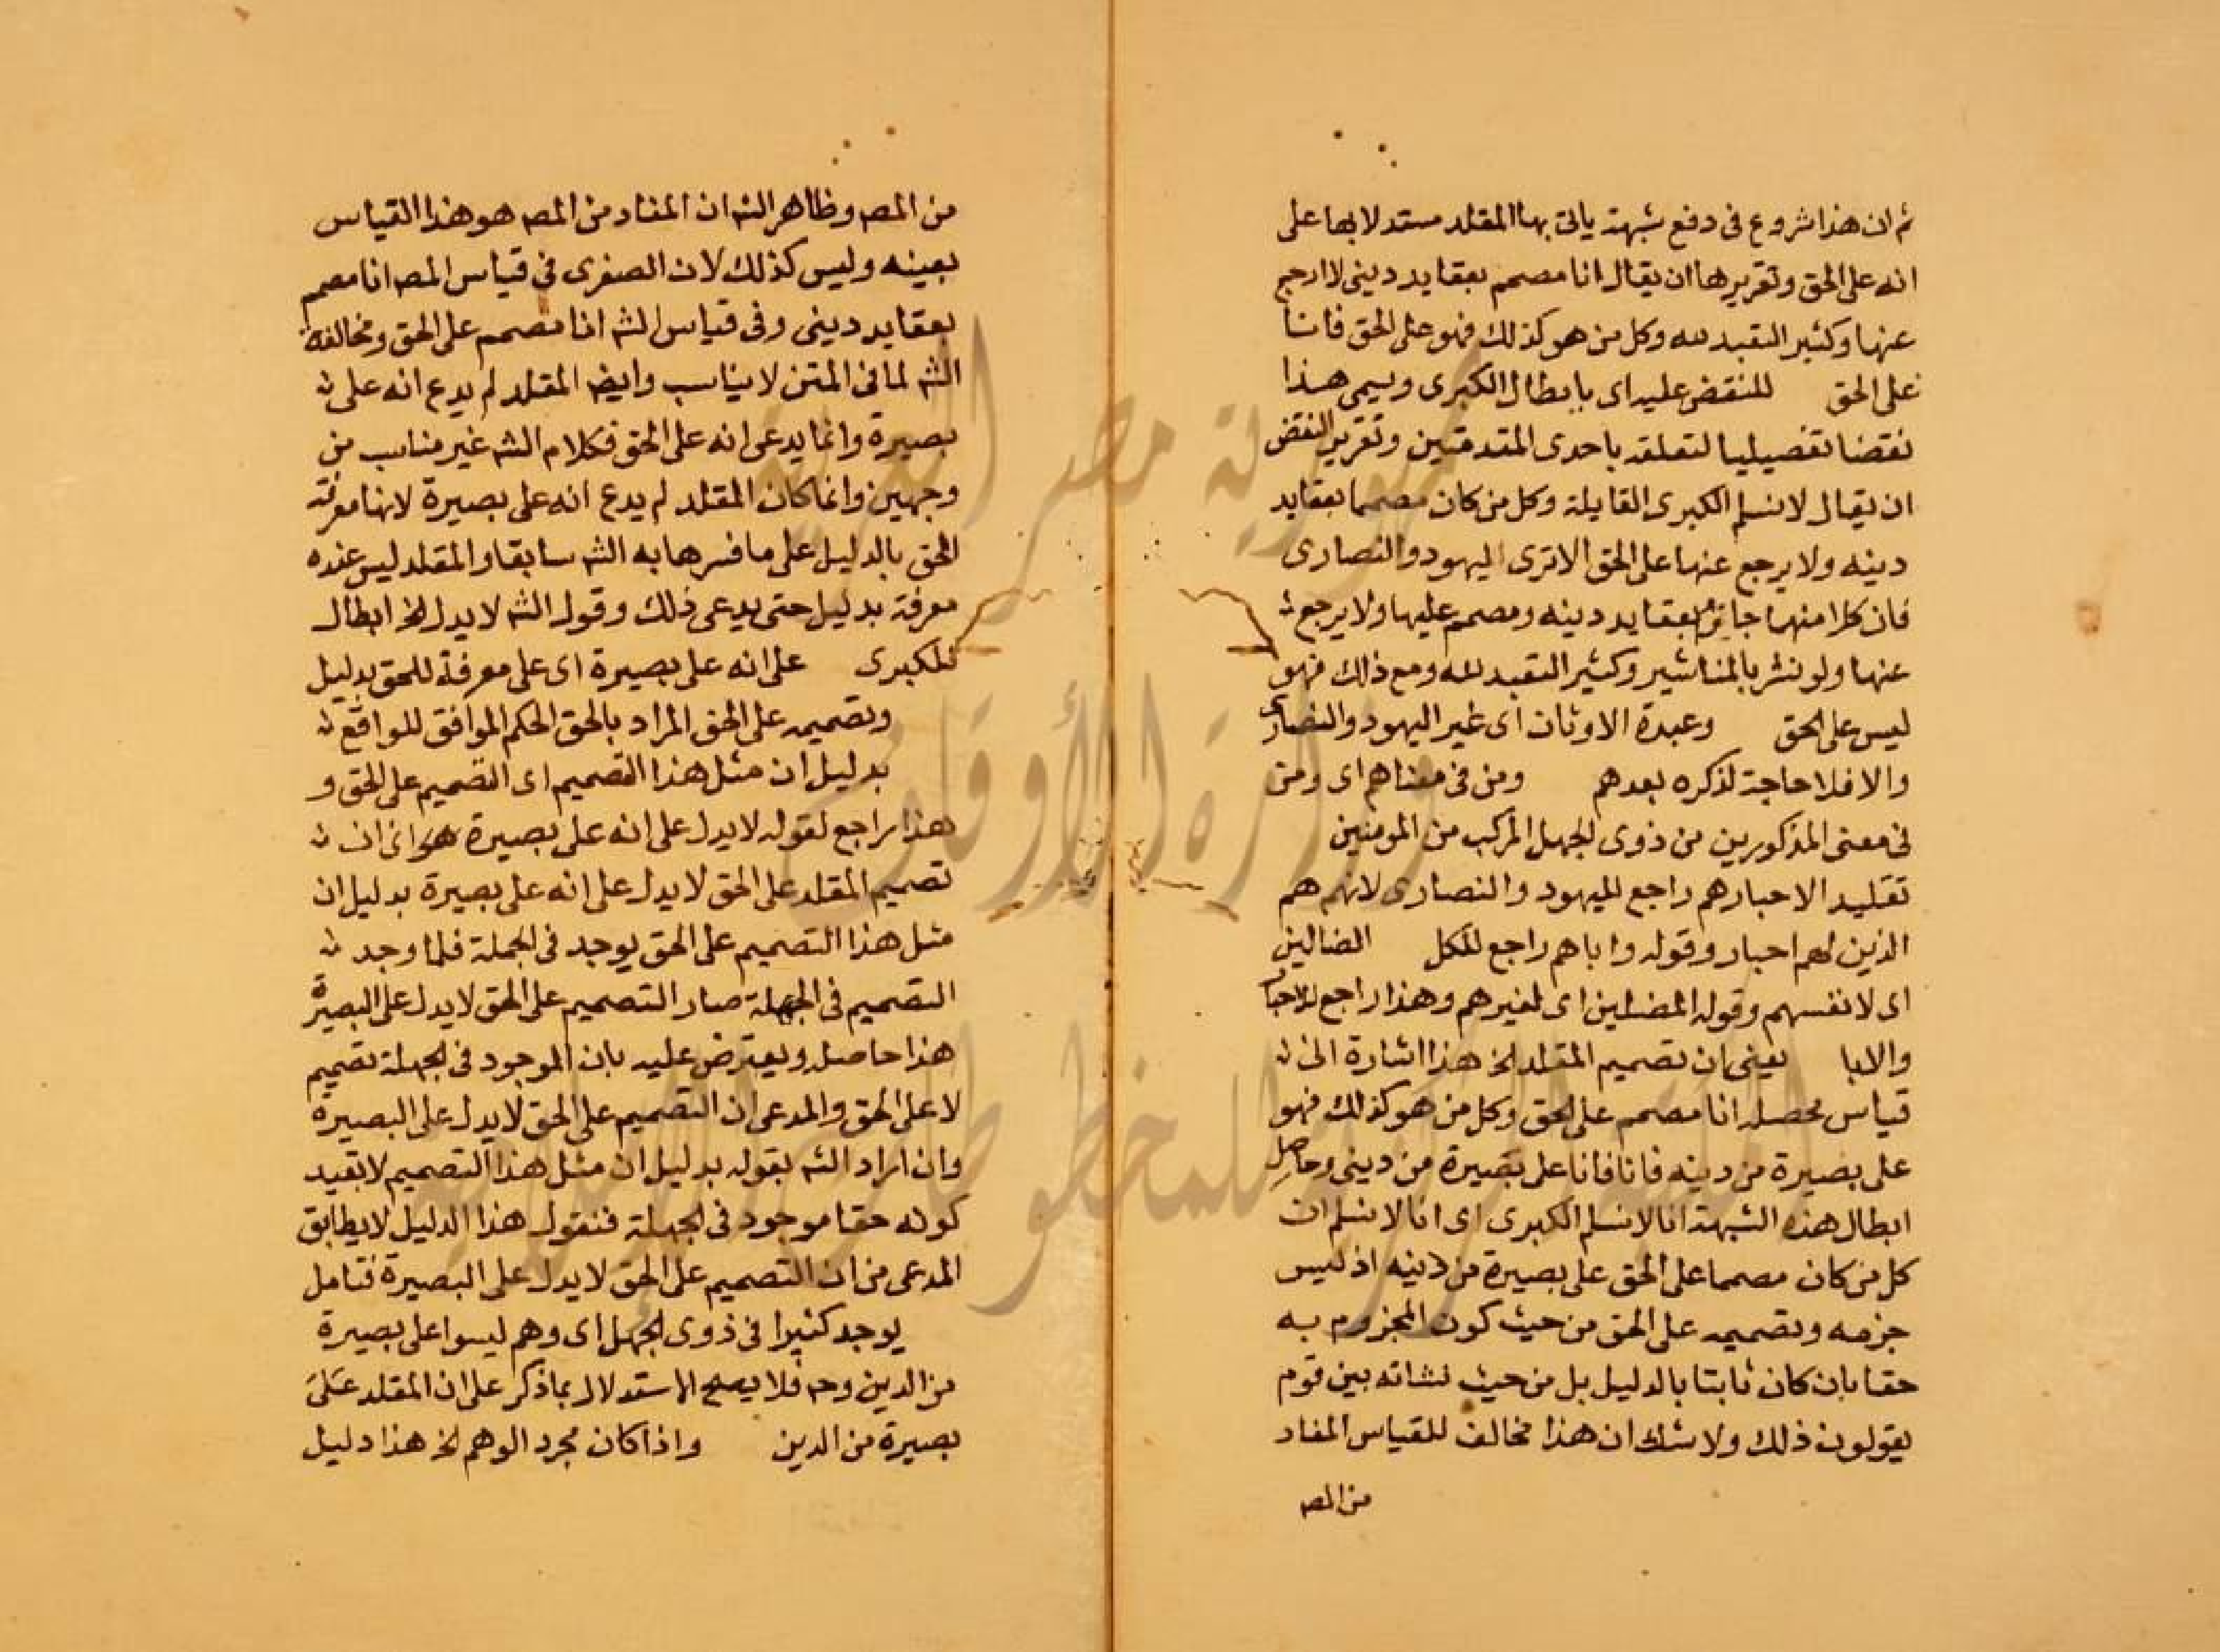 ثم ان هذا شروع فى دفع شبهة ياتى بها المقلد مستدلا بها على
انه على الحق وتقريرها ان يقال انا مصمم بعقايد دينى لا ارجع
عنها وكثير التعبد لله وكل من هو كذلك فهو على الحق فانا
على الحق للنقض عليه اى بابطال الكبرى ويسمى هذا
نقضا تفصيليا لتعلقه باحدى المقدمتين وتقرير النقض
ان يقال لا نسلم الكبرى القايلة وكل من كان مصمما بعقايد
دينه ولا يرجع عنها على الحق الا ترى اليهود والنصارى
فان كلا منهما جازم بعقايد دينه ومصمم عليها ولا يرجع
عنها ولو نشر بالمناشير وكثير التعبد لله ومع ذلك فهو
ليس على الحق وعبدة الاوثان اى غير اليهود والنصارى
والا فلا حاجة لذكره بعدهم ومن فى معناهم اى ومن
فى معنى المذكورين من ذوى الجهل المركب من المومنين
تقليد الاحبارهم راجع لليهود والنصارى لانهم هم
الذين لهم احبار وقوله واباهم راجع للكل الضالين
اى لانفسهم وقوله المضلين اى لغيرهم وهذا راجع للاحبار
والابا يعنى ان تصميم المقلد الخ هذا اشارة الى
قياس محصله انا مصمم على الحق وكل من هو كذلك فهو
على بصيرة من دينه فانا فانا على بصيرة من دينى وحاصل
ابطال هذه الشبهة انا لا نسلم الكبرى اى انا لا نسلم ان
كل من كان مصمما على الحق على بصيرة من دينه اذ ليس
جزمه وتصميمه على الحق من حيث كون المجزوم به
حقا بان كان ثابتا بالدليل بل من حيث نشاته بين قوم
يقولون ذلك ولا شك ان هذا مخالف للقياس المفاد
من المصه
من المصه وظاهر الشه ان المفاد من المصه هو هذا القياس
بعينه وليس كذلك لان الصغرى فى قياس المصه انا مصمم
بعقايد دينى وفى قياس الشه انا مصمم على الحق ومخالفة
الشه لما فى المتن لا يناسب وايضه المقلد لم يدع انه على
بصيرة وانما يدعى انه على الحق فكلام الشه غير مناسب من
وجهين وانما كان المقلد لم يدع انه على بصيرة لانها معرفة
الحق بالدليل على ما فسرها به الشه سابقا والمقلد ليس عنده
معرفة بدليل حتى يدعى ذلك وقوله الشه لا يدل الخ ابطال
للكبرى على انه على بصيرة اى على معرفة للحق بدليل
وتصميمه على الحق المراد بالحق الحكم الموافق للواقع
بدليل ان مثل هذا التصميم اى التصميم على الحق و
هذا راجع لقوله لا يدل على انه على بصيرة هو اى ان
تصميم المقلد على الحق لا يدل على انه على بصيرة بدليل ان
مثل هذا التصميم على الحق يوجد فى الجملة فلما وجد
التصميم فى الجهلة صار التصميم على الحق لا يدل على البصيرة
هذا حاصله ويعترض عليه بان الموجود فى الجهلة تصميم
لا على الحق والمدعى ان التصميم على الحق لا يدل على البصيرة
وان اراد الشه بقوله بدليل ان مثل هذا التصميم لا بقيد
كونه حقا موجود فى الجهلة فنقول هذا الدليل لا يطابق
المدعى من ان التصميم على الحق لا يدل على البصيرة فتامل
يوجد كثيرا فى ذوى الجهل اى وهم ليسوا على بصيرة
من الدين وحه فلا يصلح الاستدلال بما ذكر على ان المقلد على
بصيرة من الدين واذا كان مجرد الوهم الخ هذا دليل